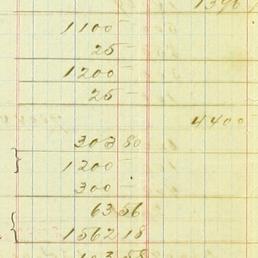 1100 —
25 —
1200 —
25 —
4400
303 80
1200 —
300 —
63 56
1562 18